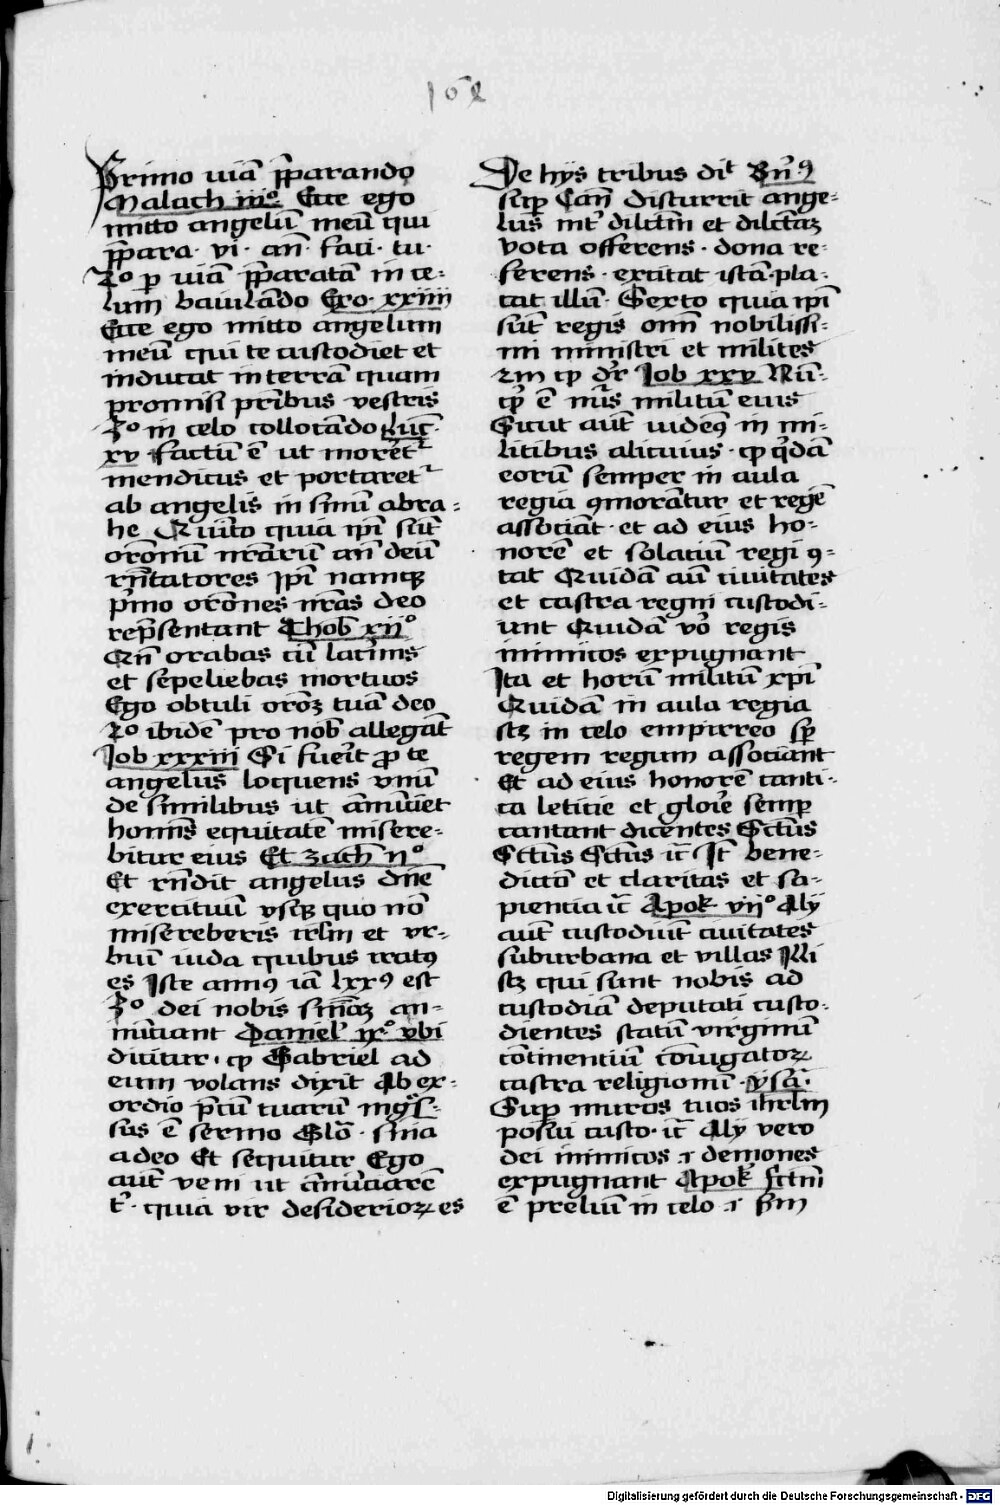 Primo uiā p̄parando
Malach iiiº. Ecce ego
mitto angelū meū qui
p̄para · vi · an̄ · faci · tu ·
2º ꝑ uiā p̄paratā in ce-
lum baiulādo Exo · xxiiii
Ecce ego mitto angelum
meū qui te custodiet et
inducat in terrā quam
promisi pr̄ibus vestris
3º in celo collocādo Luc̄ ·
xv factū ē ut moret̄
mendicus et portaret̄
ab angelis in sinū abra-
he Quīto quia ip̄i sūt
or̄onū nr̄arū an̄ deū
rn̄tatores Ip̄i namqꝫ
p̄mo or̄ones nr̄as deo
rep̄sentant Thob̄ xiiº
Qn̄ orabas cū lac̄mis
et sepeliebas mortuos
Ego obtuli or̄oꝫ tuā deo
2º ibidē pro nob̄ allegāt
Iob xxxiii Si fuerīt ꝓ te
angelus loquens vnū
de similibus ut ānūciet
homīs equitatē misere-
bitur eius Et zach̄ iiº
Et rn̄dit angelus dn̄e
exercituū vsqꝫ quo nō
misereberis ir̄lm et vr-
biū iuda quibus iratꝰ
es Iste annꝰ iā lxxꝰ est
3º dei nobis sn̄iaꝫ an-
nūciant Daniel' ixº vbi
dicitur · ꝙ Gabriel ad
eum volans dixit Ab ex-
ordio p̄cū tuarū
sus ē sermo Glō · sn̄ia
adeo Et sequitur Ego
aut̄ veni ut ānūciarē
t' · quia vir desiderioꝝ es
De hijs tribus dic̄ Bn̄ꝰ
suꝑ Can̄ discurrit ange-
lus int' dilc̄m et dilc̄aꝫ
vota offerens · dona re-
ferens · excitat istā · pla-
cat illū · Sexto quia ip̄i
sūt regis oīm nobilissi-
mi ministri et milites
ꝙ dr̄ Iob xxv Nū-
ꝙ ē nūs militū eius
Sicut aut̄ uidemꝰ in mi-
litibus alicuius · ꝙ q̄dā
eorū semper in aula
regia ꝯmorātur et regē
associāt · et ad eius ho-
norē et solaciū regi ꝯ-
tat Quidā aūt ciuitates
et castra regni custodi-
unt Quidā vō regis
inimicos expugnant
Ita et horū militū xp̄i
Quidā in aula regia
scꝫ in celo empirreo sꝑ
regem regum associant
Et ad eius honorē canti-
ca leticie et glorie semꝑ
cantant dicentes Sctūs
Sctūs Sctūs ic̄ It̄ bene-
dictō et claritas et sa-
pientia ic̄ Apok̄ viiº Alij
aut̄ custodiūt ciuitates
suburbana et villas Illi
scꝫ qui sunt nobis ad
custodiā deputati custo-
dientes statū virginū
cōtinentiū cōiugatoꝝ
castra religionū · ysa ·
Suꝑ muros tuos ihr̄lm
posui custo · ic̄ Alij vero
dei inimicos ⁊ demones
expugnant Apok̄ fctm̄
ē preliū in celo ⁊ sīm
Digitalisierung gefördert durch die Deutsche Forschungsgemeinschaft - DFG